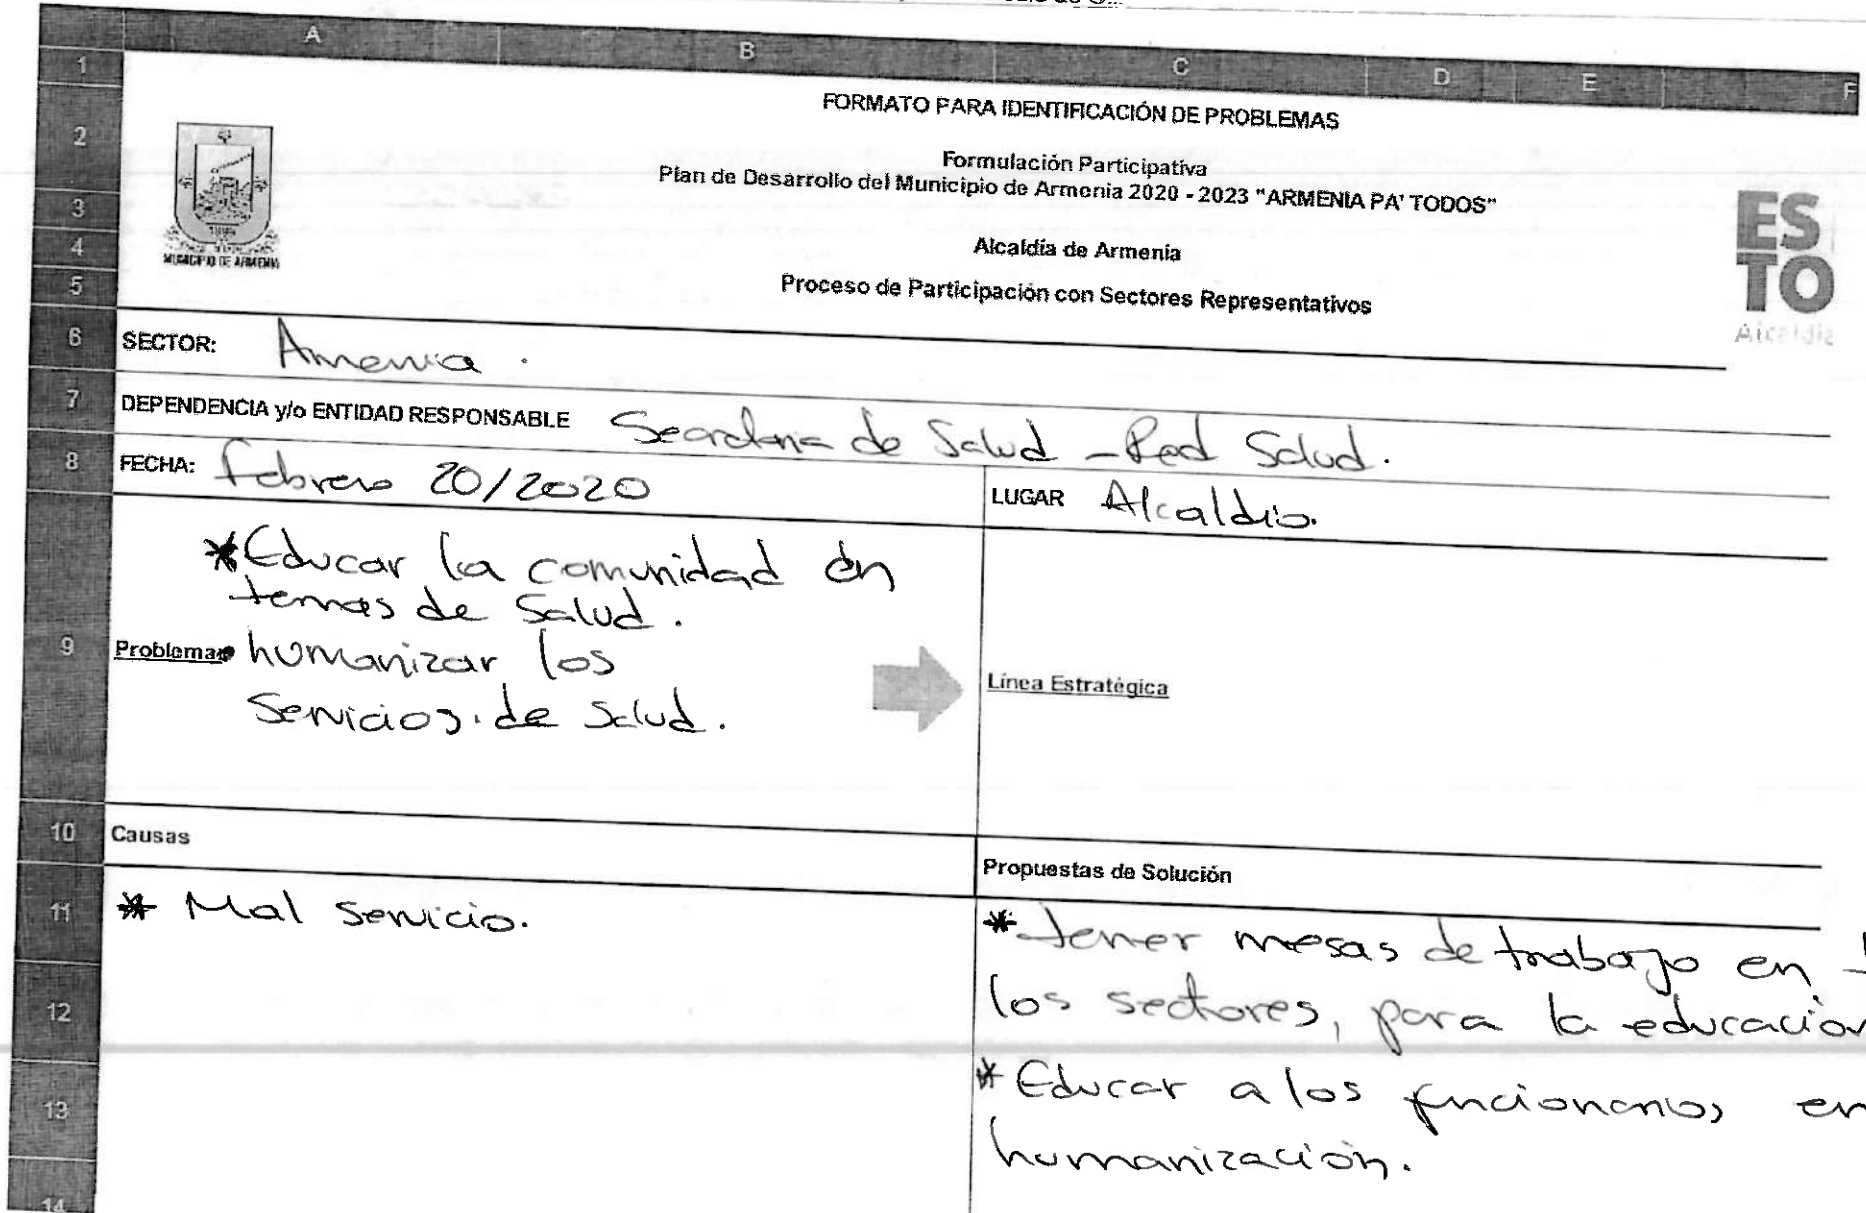 A B C D E F
1
FORMATO PARA IDENTIFICACIÓN DE PROBLEMAS
2
Formulación Participativa
Plan de Desarrollo del Municipio de Armenia 2020 - 2023 "ARMENIA PA' TODOS"
3
4
Alcaldía de Armenia
MUNICIPIO DE ARMENIA
5
Proceso de Participación con Sectores Representativos
ES
TO
Alcaldía
6 SECTOR: Armenia .
7 DEPENDENCIA y/o ENTIDAD RESPONSABLE Secretaria de Salud - Red Salud.
8 FECHA: febrero 20/2020 LUGAR Alcaldia.
*Educar la comunidad en
temas de Salud.
9 Problemas humanizar los
Servicios. de Salud.
Línea Estratégica
10 Causas
Propuestas de Solución
11 * Mal servicio.
* tener mesas de trabajo en
12 los sectores, para la educacion
13 * Educar a los funcionarios en
humanización.
14